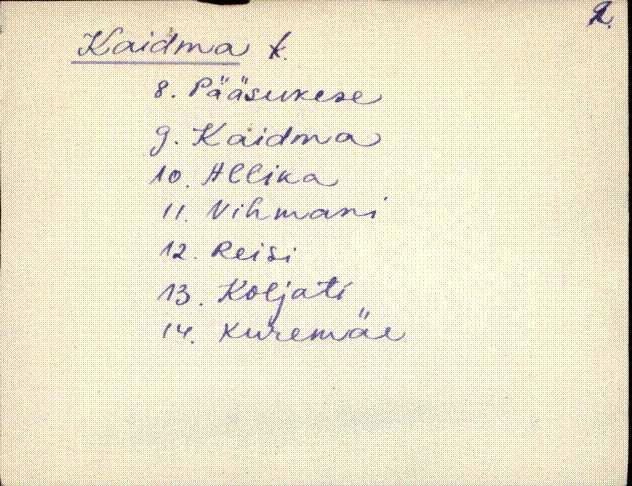 2.
Kaidma k.
8. Pääsukese
9. Kaidma
10. Allika
11. Vihmani
12. Reisi
13. Koljati
14. Kuremäe